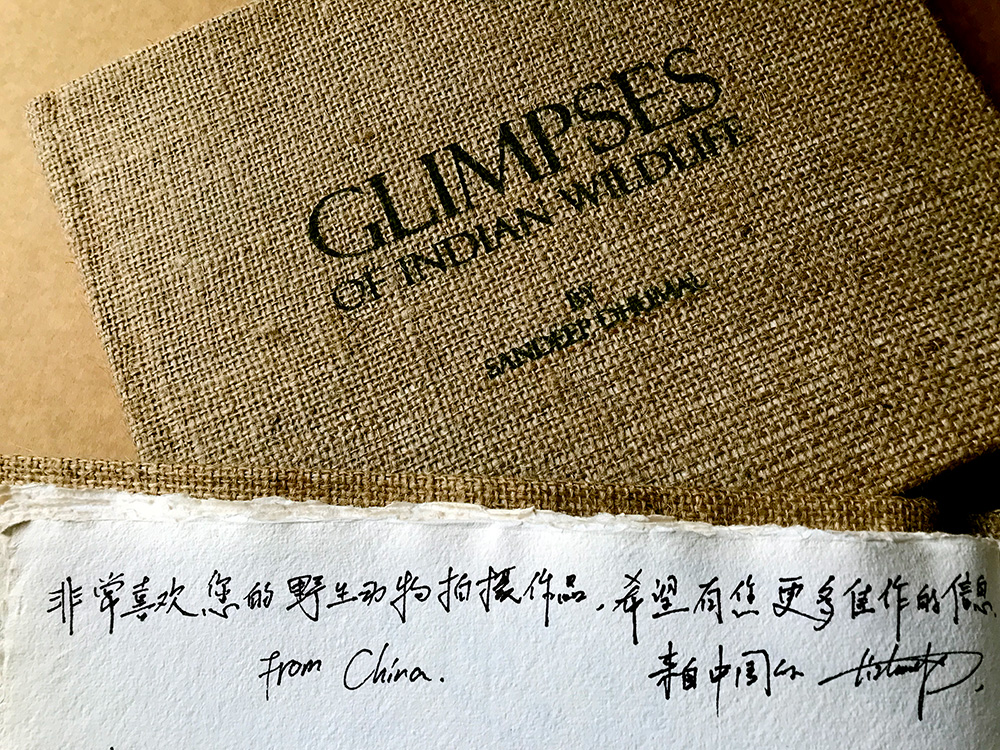 GLIMPSES
OF INDIAN WILDLIFE
BY
SANDEEP DHUMAL
非常喜欢您的野生动物拍摄作品,希望有您更多佳作的信息
from China.
来自中国的